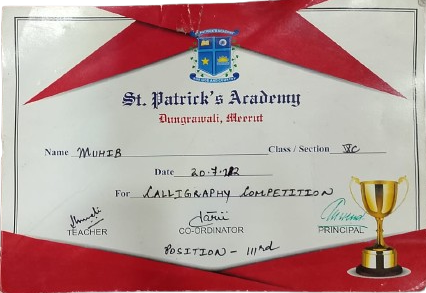 St. Patrick's Academy
Dungrawali, Meerut
Name MUHIB Class / Section VC
Date 20.7.
For CALLIGRAPHY COMPETITION
TEACHER CO-ORDINATOR PRINCIPAL
POSITION - IIIrd